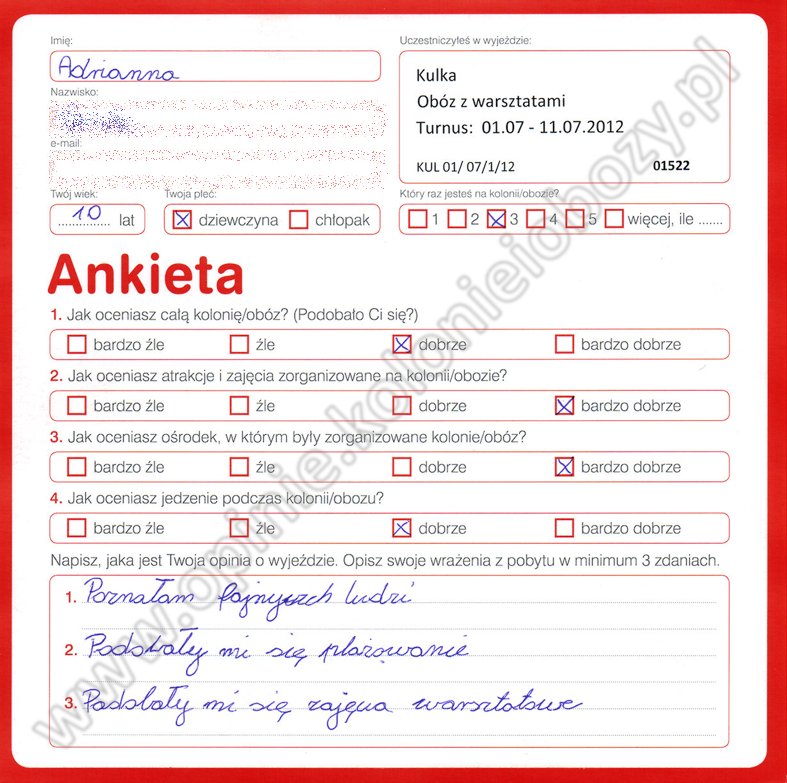 Imię:
Uczestniczyłeś w wyjeździe:
Adrianna
Kulka
Obóz z warsztatami
Turnus: 01.07 - 11.07.2012
KUL 01/ 07/1/12 01522
Nazwisko:
e-mail:
Twój wiek:
Twoja płeć:
Który raz jesteś na kolonii/obozie?
10 lat
dziewczyna chłopak
1 2 3 4 5 więcej, ile .......
Ankieta
1. Jak oceniasz całą kolonię/obóz? (Podobało Ci się?)
bardzo źle źle dobrze bardzo dobrze
2. Jak oceniasz atrakcje i zajęcia zorganizowane na kolonii/obozie?
bardzo źle źle dobrze bardzo dobrze
3. Jak oceniasz ośrodek, w którym były zorganizowane kolonie/obóz?
bardzo źle źle dobrze bardzo dobrze
4. Jak oceniasz jedzenie podczas kolonii/obozu?
bardzo źle źle dobrze bardzo dobrze
Napisz, jaka jest Twoja opinia o wyjeździe. Opisz swoje wrażenia z pobytu w minimum 3 zdaniach.
1. Poznałam fajnych ludzi
2. Podobały mi się plażowanie
3. Podobały mi się zajęcia warsztatowe
www.opinie.kolonieiobozy.pl